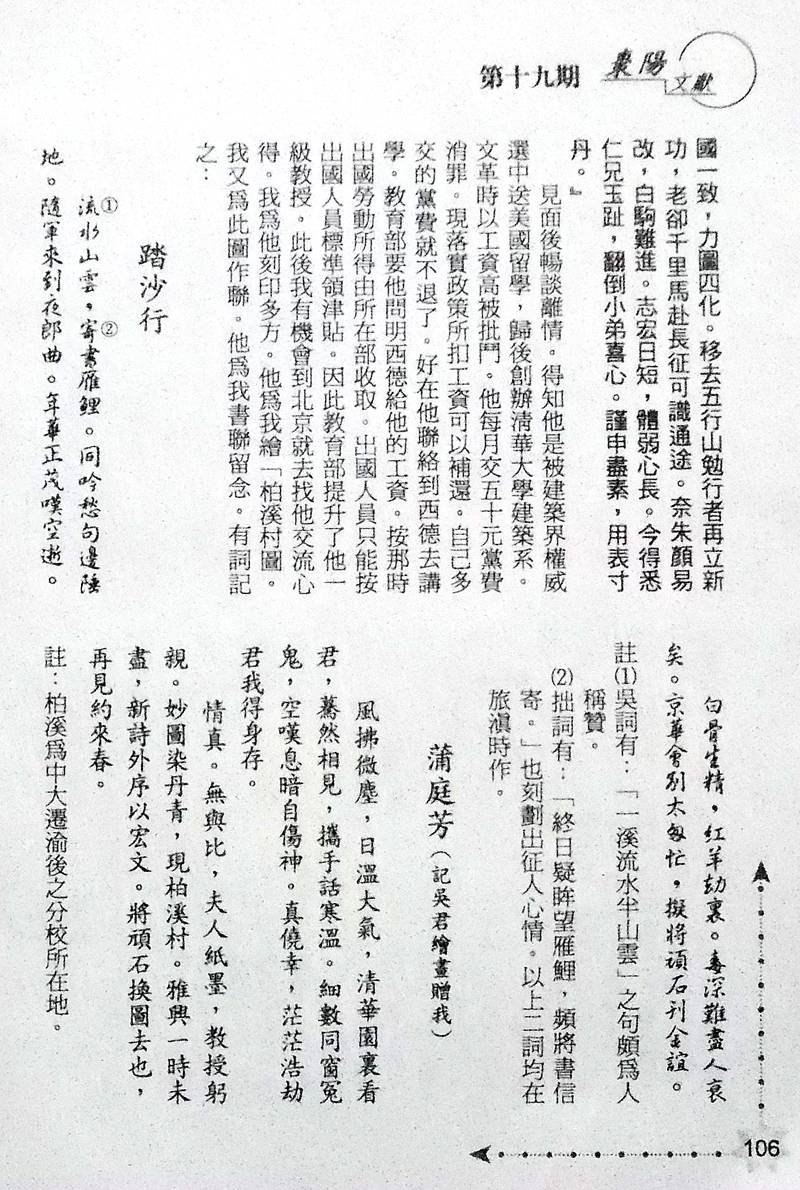 第十九期
棗陽
文獻
國一致，力圖四化。移去五行山勉行者再立新
功，老卻千里馬赴長征可識通途。奈朱顏易
改，白駒難進。志宏日短，體弱心長。今得悉
仁兄玉趾，翻倒小弟喜心。謹申盡素，用表寸
丹。』
見面後暢談離情。得知他是被建築界權威
選中送美國留學，歸後創辦清華大學建築系。
文革時以工資高被批鬥。他每月交五十元黨費
消罪。現落實政策所扣工資可以補還。自己多
交的黨費就不退了。好在他聯絡到西德去講
學。教育部要他問明西德給他的工資。按那時
出國勞動所得由所在部收取。出國人員只能按
出國人員標準領津貼。因此教育部提升了他一
級教授。此後我有機會到北京就去找他交流心
得。我爲他刻印多方。他爲我繪「柏溪村圖。
我又爲此圖作聯。他爲我書聯留念。有詞記
之：
踏沙行
流水山雲①，寄書雁鯉②。同吟愁句邊陲
地。隨軍來到夜郎曲。年華正茂嘆空逝。
白骨生精，紅羊劫裏。毒深難盡人衰
矣。京華會別太匆忙，擬將頑石刊金誼。
註⑴吳詞有：「一溪流水半山雲」之句頗爲人
稱贊。
⑵拙詞有：「終日疑眸望雁鯉，頻將書信
寄。」也刻劃出征人心情。以上二詞均在
旅滇時作。
蒲庭芳（記吳君繪畫贈我）
風拂微塵，日溫大氣，清華園裏看
君，驀然相見，攜手話寒溫。細數同窗冤
鬼，空嘆息暗自傷神。真僥幸，茫茫浩劫
君我得身存。
情真。無與比，夫人紙墨，教授躬
親。妙圖染丹青，現柏溪村。雅興一時未
盡，新詩外序以宏文。將頑石換圖去也，
再見約來春。
註：柏溪爲中大遷渝後之分校所在地。
106